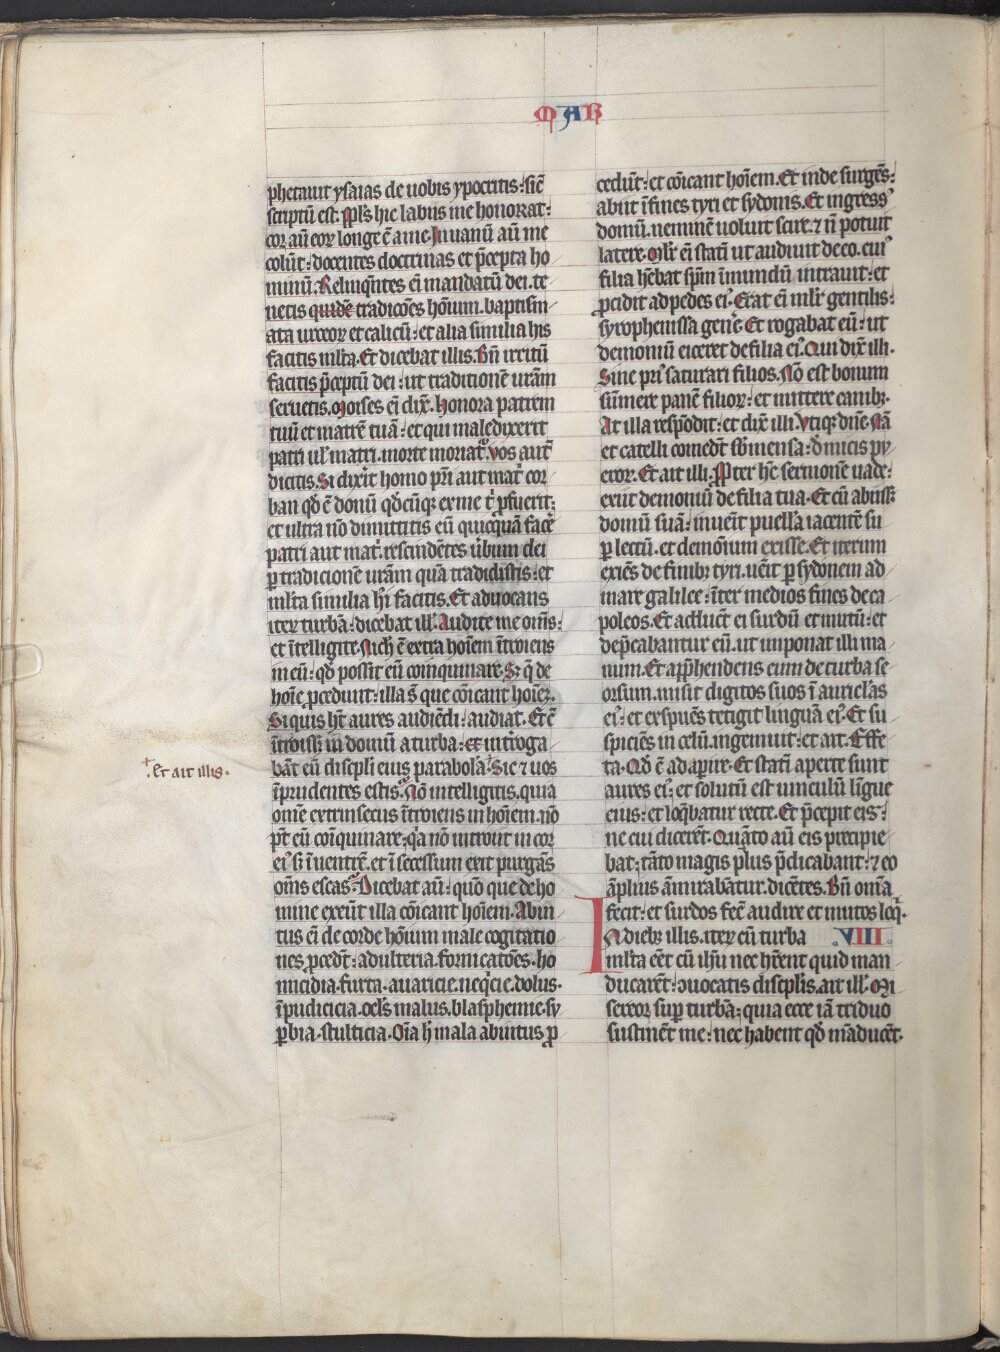 MAR
phetauit ysaias de uobis ypocritis: sic̄
scriptū est. Ppl̄s hic labiis me honorat:
cor aū eoꝝ longe ē a me. In uanū aū me
colūt: docentes doctrinas et p̄cepta ho
minū. Relinq̄ntes eī mandatū dei. te
netis quidē tradicōes hōium. baptism
ata urceoꝝ et calicū: et alia similia his
facitis ml̄ta. Et dicebat illis. Bn̄ irritū
facitis p̄ceptū dei: ut traditionē urām
seruetis. Moises eī dix̄. Honora patrem
tuū et matrē tuā: et qui maledixerit
patri ul̓ matri. morte moriat᷑. Vos aut̄
dicitis. Si dixīt homo pr̄i aut mat̄ cor
ban qd̄ ē donū qd̄cūqꝫ ex me t̓ ꝓfuerit:
et ultra nō dimittitis eū quicq̄uā facē
patri aut mat̓. rescindētes ūbum dei
ꝑ tradicionē urām quā tradidistis: et
ml̄ta similia hī facitis. Et aduocans
iteꝝ turbā: dicebat ill̓. Audite me om̄s:
et ītelligite. Nich̓ ē extra hoīem ītroiens
in eū: qd̄ possit eū coinquinare. Sꝫ q̄ de
hoīe ꝓcedunt: illa s̄t que cōicant hoīeꝫ.
Siquis ht̄ aures audiēdi: audiat. Et c̄
ītroissꝫ in domū a turba: et introga
bāt eū discipl̄i eius parabol̄a. Sic ⁊ uos
. Et ait illis.
īprudentes estis. Nō intelligitis. quia
om̄e extrinsecus ītroiens in hoīem. nō
pt̄ eū coīquinare: q̓a nō introit in cor
ei᷒ sꝫ ī uentrē. et ī secessum exit purgās
om̄s escas. Dicebat aū: quō que de ho
mine exeūt illa cōicant hoīem. Abin
tus eī de corde hōium male cogitatio
nes ꝓcedt̄: adulteria. fornicatōes. ho
micidia. furta. auaricie. neq̄cie. dolus.
īpudicicia. ocl̄s malus. blasphemie. sy
ꝑbia. stulticia. Oīa h̄ mala abintus ꝓ
cedūt: et cōicant hoīem. Et inde surgēs:
abiit ī fines tyri et sydonis. Et ingress᷒
domū. neminē uoluit scire. ⁊ n̄ potuit
latere. Ml̓r eī statī ut audiuit de eo. cui᷒
filia hēbat sp̄m īmundū intrauit: et
ꝓcidit ad pedes ei᷒. Erat eī ml̓r gentilis:
syrophenissa genē. Et rogabat eū: ut
demoniū eiceret de filia ei᷒. Qui dix̄ illi.
Sine pri᷒ saturari filios. Nō est bonum
sūmere panē filioꝝ: et mittere canibꝫ.
At illa respōdit: et dix̄ illi. Vtiqꝫ dn̄e. Nā
et catelli comedt̄ sb̄ mensa: d̓ micis pu
eroꝝ. Et ait illi. Propter hc̄ sermonē uade:
exiit demoniū de filia tua. Et cū abiissꝫ
domū suā: inueīt puell̄a iacentē su
ꝑ lectū. et demōium exisse. Et iterum
exiēs de finibꝫ tyri. ueīt ꝑ sydonem ad
mare galilee: īter medios fines deca
poleos. Et adduc̄t ei surdū et mutū: et
dep̄cabantur eū. ut imponat illi ma
num. Et app̄hendens eum de turba se
orsum. misit digitos suos ī auricl̄as
ei᷒: et exspuēs tetigit linguā ei᷒. Et su
spiciēs in celū. ingemuit: et ait. Effe
ta. Qd̄ ē adapire. Et statī aperte sunt
aures ei᷒: et solutū est uinculū līgue
eius: et loq̄batur recte. Et p̄cepit eis:
ne cui dicerēt. Quāto aū eis precipie
bat: tāto magis plus p̄dicabant: ⁊ eo
āplius āmirabātur. dicētes. Bn̄ omīa
fecit: et surdos fec̄ audire et mutos loq̓.
In diebꝫ illis. iteꝝ cū turba .VIII.
ml̄ta eēt cū ih̄u nec hr̄ent quid man
ducarēt: ꝯuocatis discipl̄is. ait ill̓. Mi
sereor suꝑ turbā: quia ecce iā triduo
sustinēt me: nec habent qd̄ māducēt.